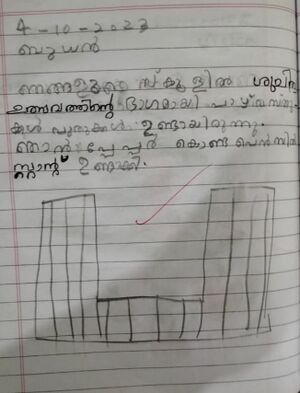 4-10-2023
ബുധൻ
ഞങ്ങളുടെ സ്കൂളിൽ ശുചിത്വ
ഉത്സവത്തിന്റെ ഭാഗമായി പാഴ്‌വസ്തു
ക്കൾ ഉണ്ടായിരുന്നു.
ഞാൻ പേപ്പർ കൊണ്ട് പെൻസിൽ
സ്റ്റാന്റ് ഉണ്ടാക്കി.